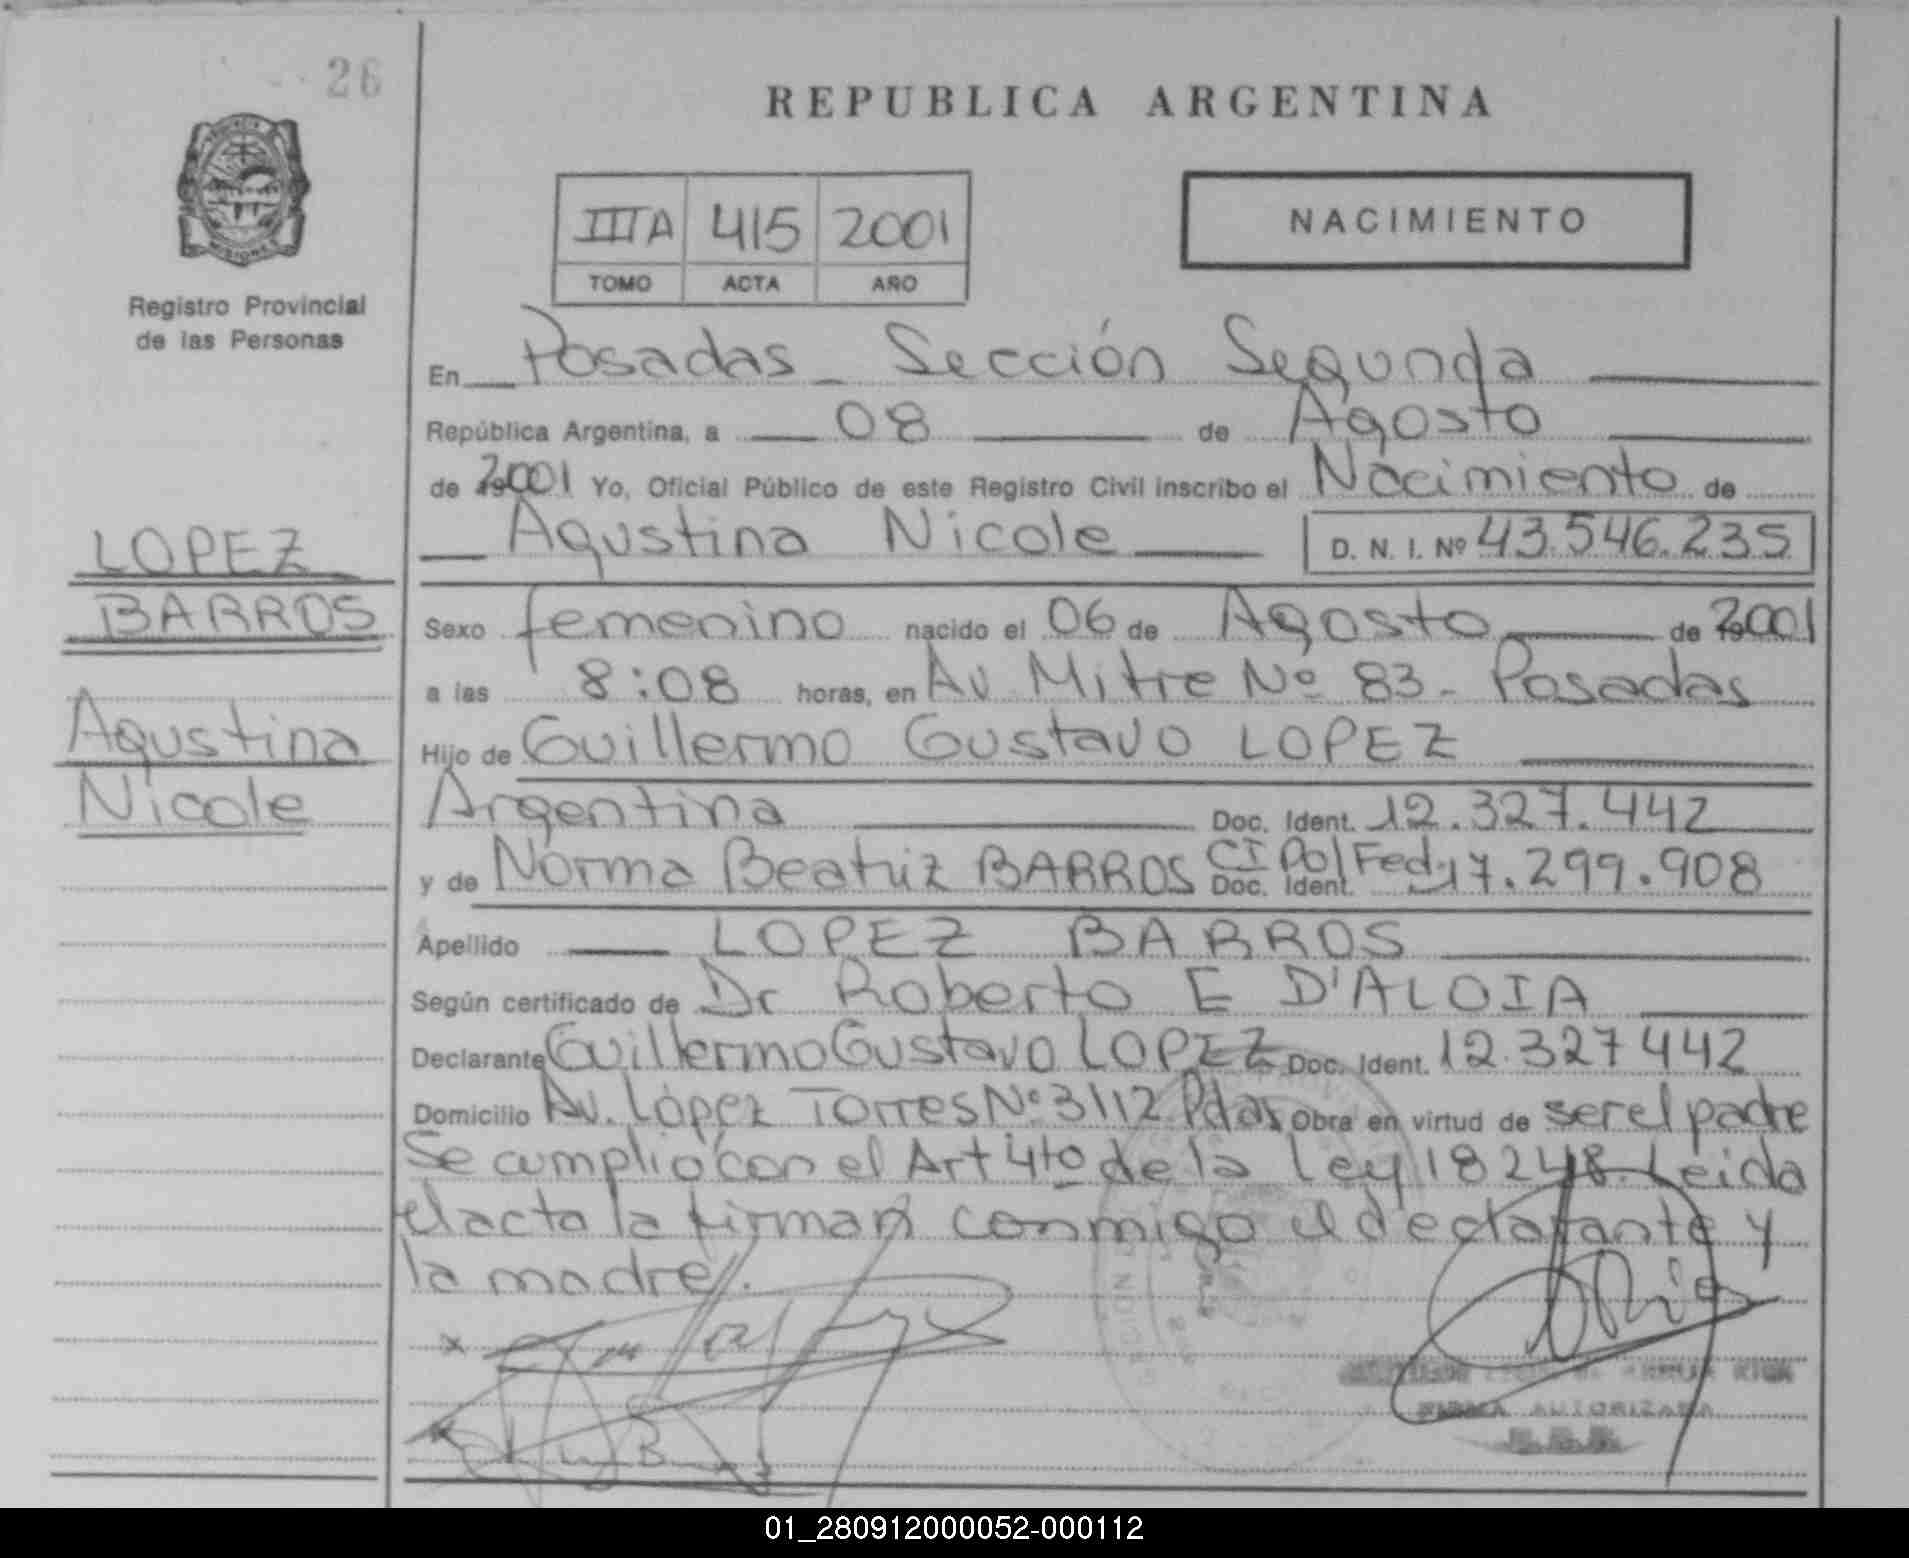 26
REPUBLICA ARGENTINA
IIIA 415 2001
TOMO ACTA AÑO
NACIMIENTO
Registro Provincial
de las Personas
En Posadas - Sección Segunda
República Argentina, a 08 de Agosto
de 2001 Yo, Oficial Público de este Registro Civil inscribo el Nacimiento de
Agustina Nicole D. N. I. Nº 43.546.235
LOPEZ
BARROS
Agustina
Nicole
Sexo femenino nacido el 06 de Agosto de 2001
a las 8:08 horas, en Av Mitre Nº 83 - Posadas
Hijo de Guillermo Gustavo LOPEZ
Argentina Doc. Ident. 12.327.442
y de Norma Beatriz BARROS CI Pol Fed Doc. Ident. 17.299.908
Apellido LOPEZ BARROS
Según certificado de Dr Roberto E D'ALOIA
Declarante Guillermo Gustavo LOPEZ Doc. Ident. 12.327442
Domicilio Av. López Torres Nº 3112 Pdas Obra en virtud de ser el padre
Se cumplió con el Art 4to de la Ley 18248. Leida
el acta la firman conmigo el declarante y
la madre.
FIRMA AUTORIZADA
01_280912000052-000112